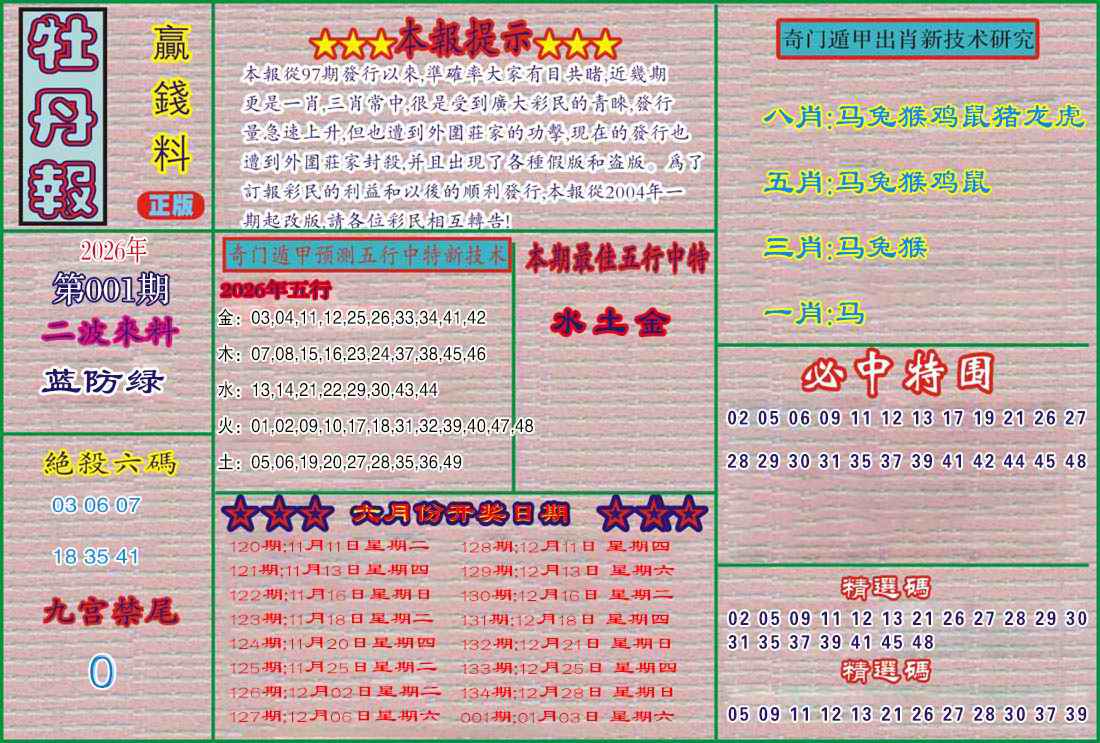 牡丹報
贏錢料
正版
2026年
第001期
二波來料
蓝防绿
絕殺六碼
03 06 07
18 35 41
九宫禁尾
0
★★★本報提示★★★
本報從97期發行以來,準確率大家有目共睹,近幾期
更是一肖,三肖常中,很是受到廣大彩民的青睞,發行
量急速上升,但也遭到外圍莊家的功擊,現在的發行也
遭到外圍莊家封殺,并且出現了各種假版和盗版。爲了
訂報彩民的利益和以後的順利發行,本報從2004年一
期起改版,請各位彩民相互轉告!
奇门遁甲预测五行中特新技术
2026年五行
金：03,04,11,12,25,26,33,34,41,42
木：07,08,15,16,23,24,37,38,45,46
水：13,14,21,22,29,30,43,44
火：01,02,09,10,17,18,31,32,39,40,47,48
土：05,06,19,20,27,28,35,36,49
本期最佳五行中特
水土金
☆☆☆ 六月份开奖日期 ☆☆☆
120期;11月11日星期二 128期;12月11日 星期四
121期;11月13日 星期四 129期;12月13日 星期六
122期;11月16日 星期日 130期;12月16日 星期二
123期;11月18日 星期二 131期;12月18日 星期四
124期;11月20日 星期四 132期;12月21日 星期日
125期;11月25日 星期二 133期;12月25日 星期四
126期;12月02日 星期二 134期;12月28日 星期日
127期;12月06日 星期六 001期;01月03日 星期六
奇门遁甲出肖新技术研究
八肖:马兔猴鸡鼠猪龙虎
五肖:马兔猴鸡鼠
三肖:马兔猴
一肖:马
必中特围
02 05 06 09 11 12 13 17 19 21 26 27
28 29 30 31 35 37 39 41 42 44 45 48
精選碼
02 05 09 11 12 13 21 26 27 28 29 30
31 35 37 39 41 45 48
精選碼
05 09 11 12 13 21 26 27 28 30 37 39